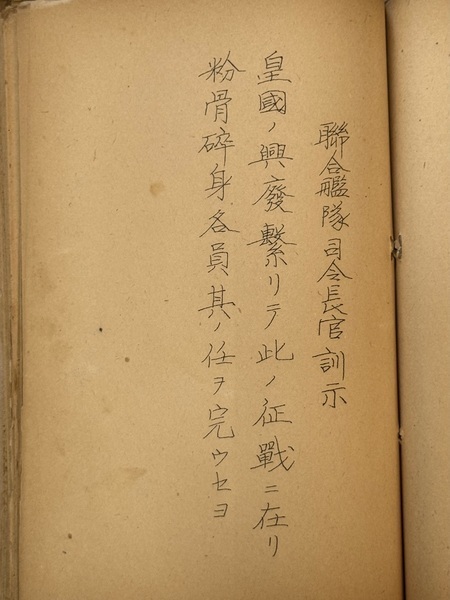 聯合艦隊司令長官訓示
皇國ノ興廢繫リテ此ノ征戰ニ在リ
粉骨碎身各員其ノ任ヲ完ウセヨ